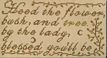 the flower,
bush, and tree
by the lady, C
blessed you'll be